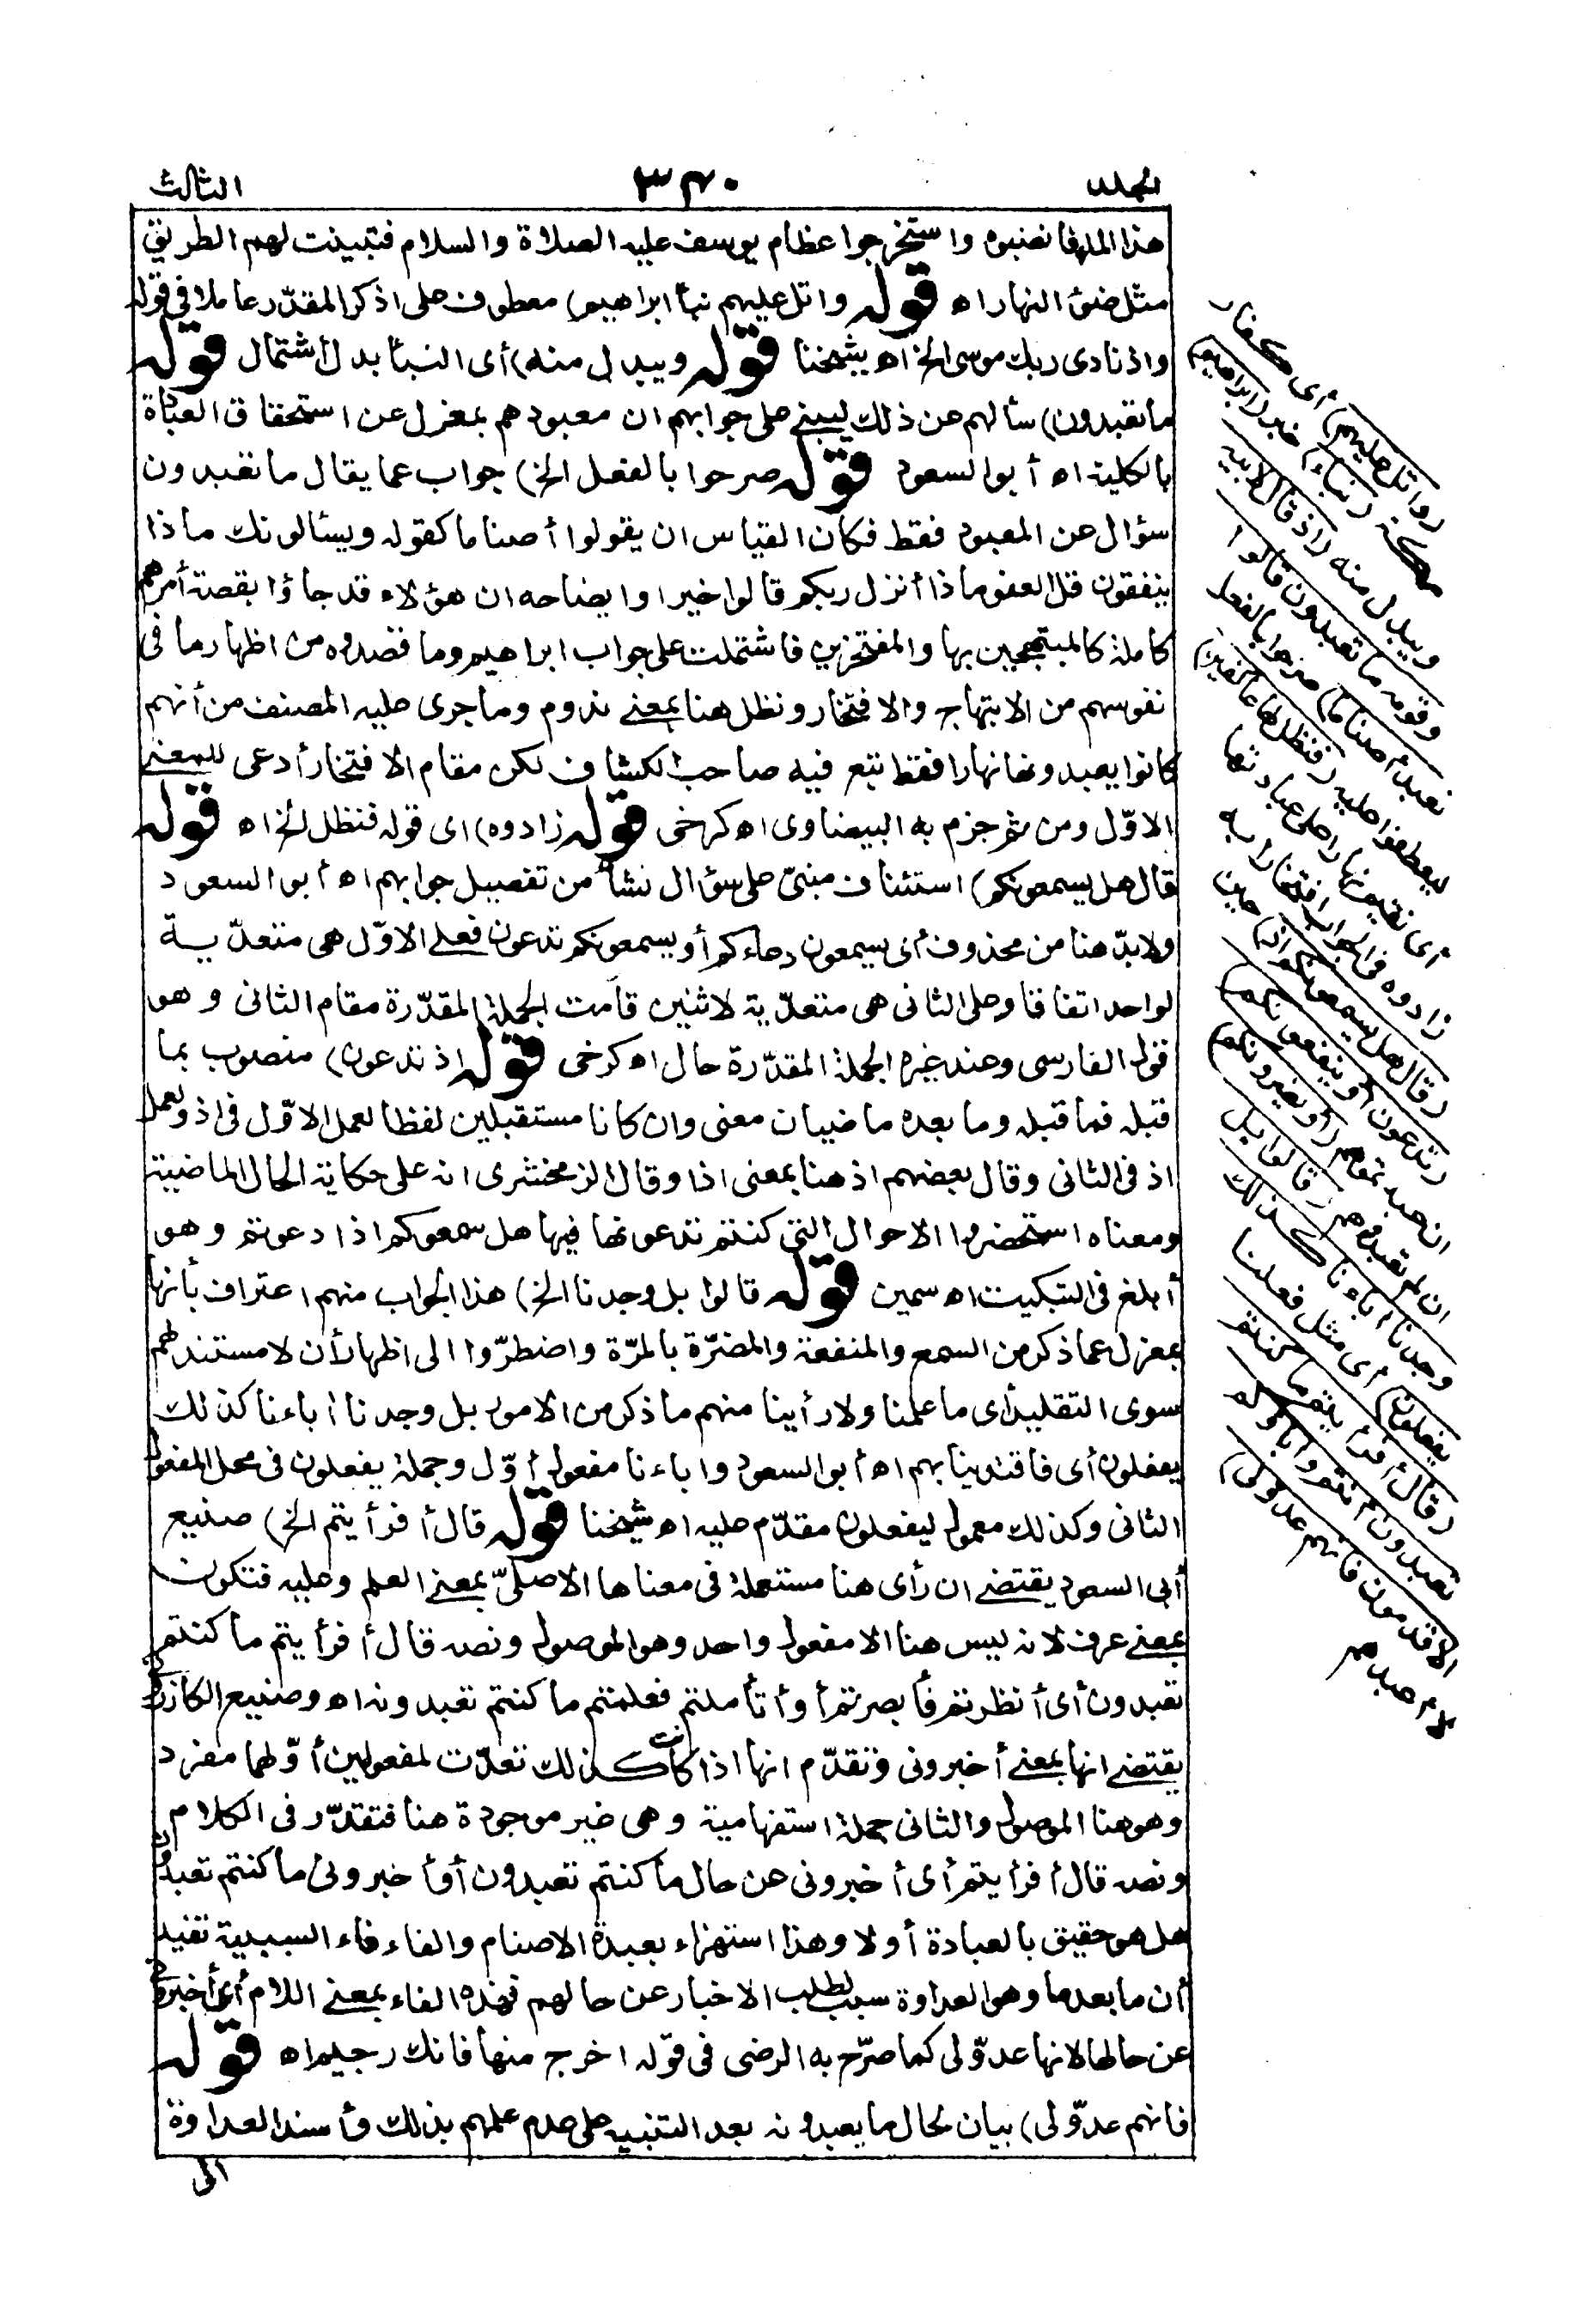 المجلد ٣٤٠ الثالث
هذا الماء فانضبوه واستخرجوا عظام يوسف عليه الصلاة والسلام فتبينت لهم الطريق
مثل ضوء النهار اه قوله واتل عليهم نبأ ابراهيم) معطوف على اذكر المقدّر عاملا في قوله
واذ نادى ربك موسى الخ اه شيخنا قوله ويبدل منه) أى النبأ بدل اشتمال قوله
ما تعبدون) سألهم عن ذلك ليبنى على جوابهم ان معبودهم بمعزل عن استحقاق العبادة
بالكلية اه أبو السعود قوله صرحوا بالفعل الخ) جواب عما يقال ما تعبدون
سؤال عن المعبود فقط فكان القياس ان يقولوا أصناما كقوله ويسألونك ماذا
ينفقون قل العفو ماذا أنزل ربكم قالوا خيرا وايضاحه ان هؤلاء قد جاؤا بقصة أمرهم
كاملة كالمبتهجين بها والمفتخرين فاشتملت على جواب ابراهيم وما قصدوه من اظهار ما فى
نفوسهم من الابتهاج والافتخار ونظل هنا بمعنى ندوم وما جرى عليه المصنف من أنهم
كانوا يعبدونها نهارا فقط تبع فيه صاحب الكشاف لكن مقام الافتخار أدعى للمعنى
الاوّل ومن ثم جزم به البيضاوى اه كرخى قوله زادوه) اى قوله فنظل الخ اه قوله
قال هل يسمعونكم) استئناف مبنىّ على سؤال نشأ من تفصيل جوابهم اه أبو السعود
ولابدّ هنا من محذوف أى يسمعون دعاءكم أو يسمعونكم تدعون فعلى الاوّل هى متعدّية
لواحد اتفاقا وعلى الثانى هى متعدّية لاثنين قامت الجملة المقدّرة مقام الثانى وهو
قول الفارسى وعند غيره الجملة المقدّرة حال اه كرخى قوله اذ تدعون) منصوب بما
قبله فما قبله وما بعده ماضيان معنى وان كانا مستقبلين لفظا لعمل الاوّل فى اذ ولعمل
اذ فى الثانى وقال بعضهم اذ هنا بمعنى اذا وقال الزمخشرى انه على حكاية الحال الماضية
ومعناه استحضروا الاحوال التى كنتم تدعونها فيها هل سمعوكم اذا دعوتم وهو
أبلغ فى التبكيت اه سمين قوله قالوا بل وجدنا الخ) هذا الجواب منهم اعتراف بأنها
بمعزل عما ذكر من السمع والمنفعة والمضرّة بالمرّة واضطرّوا الى اظهار أن لا مستند لهم
سوى التقليد أى ما علمنا ولا رأينا منهم ما ذكر من الامور بل وجدنا أباءنا كذلك
يفعلون أى فاقتدينا بهم اه أبو السعود واباءنا مفعول أوّل وجملة يفعلون فى محل المفعول
الثانى وكذلك معمول ليفعلون مقدّم عليه اه شيخنا قوله قال أفرأيتم الخ) صنيع
أبى السعود يقتضى ان رأى هنا مستعملة فى معناها الاصلىّ بمعنى العلم وعليه فتكون
بمعنى عرف لانه ليس هنا الا مفعول واحد وهو الموصول ونصه قال أفرأيتم ما كنتم
تعبدون أى أنظرتم فأبصرتم أو أتأملتم فعلمتم ما كنتم تعبدونه اه وصنيع الكازرونى
يقتضى انها بمعنى أخبرونى وتقدّم انها اذا كانت كذلك تعدّت لمفعولين أوّلهما مفرد
وهو هنا الموصول والثانى جملة استفهامية وهى غير موجودة هنا فتقدّر فى الكلام
ونصه قال أفرأيتم أى أخبرونى عن حال ما كنتم تعبدون أو أخبرونى ما كنتم تعبدون
هل هو حقيق بالعبادة أولا وهذا استهزاء بعبدة الاصنام والفاء فاء السببية تفيد
أن ما بعدها وهو العداوة سبب لطلب الاخبار عن حالهم فهذه الفاء بمعنى اللام أى أخبرونى
عن حالها لانها عدوّ لى كما صرّح به الرضى فى قوله اخرج منها فانك رجيم اه قوله
فانهم عدوّ لى) بيان لحال ما يعبدونه بعد التنبيه على عدم علمهم بذلك وأسند العداوة
الى
(واتل عليهم) أى كفار
مكة (نبأ) خبر (ابراهيم)
ويبدل منه (اذ قال لابيه
وقومه ما تعبدون قالوا
نعبد أصناما) صرحوا بالفعل
ليعطفوا عليه (فنظل لها عاكفين)
أى نقيم نهارا على عبادتها
زادوه فى الجواب افتخارا به
(قال هل يسمعونكم اذ) حين
(تدعون أو ينفعونكم)
ان عبدتموهم (أو يضرونكم)
ان لم تعبدوهم (قالوا بل
وجدنا أباءنا كذلك
يفعلون) أى مثل فعلنا
(قال أفرأيتم ما كنتم
تعبدون أنتم وأباؤكم
الاقدمون فانهم عدوّ لى)
لا أعبدهم